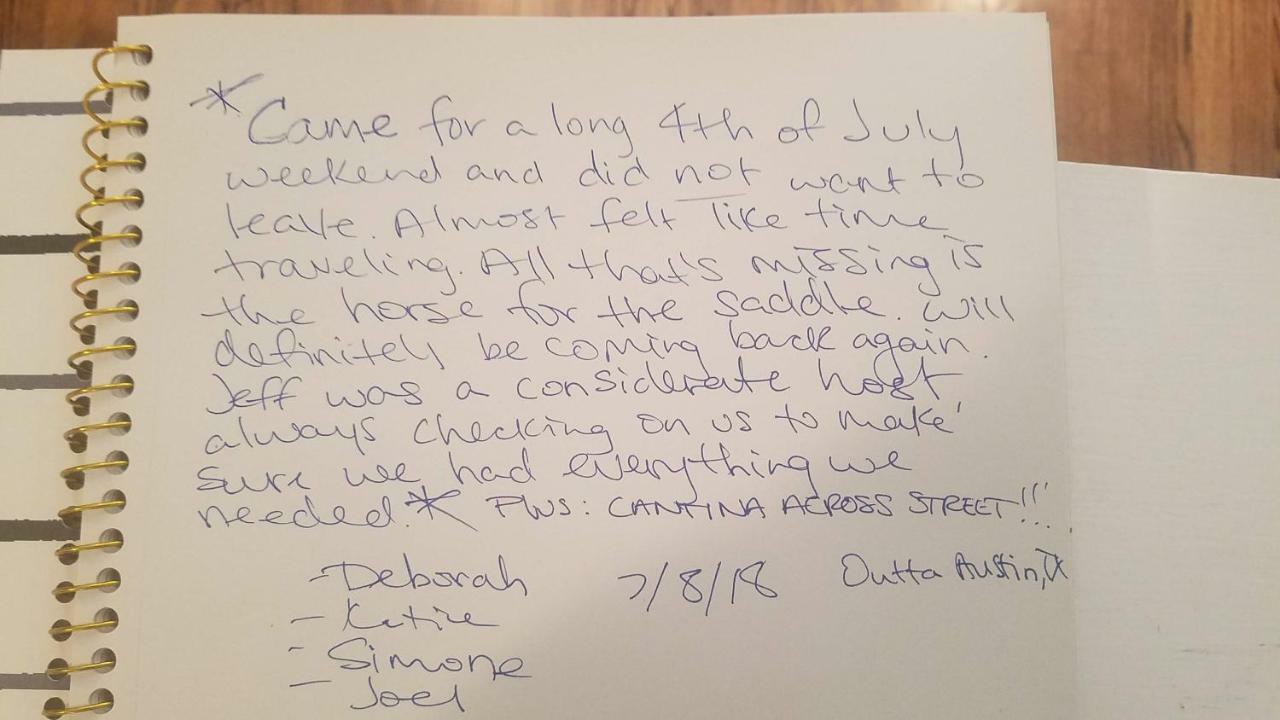 * Came for a long 4th of July
weekend and did not want to
leave. Almost felt like time
traveling. All that's missing is
the horse for the saddle. Will
definitely be coming back again.
Jeff was a considerate host
always checking on us to make
sure we had everything we
needed.* PLUS: CANTINA ACROSS STREET!!!
- Deborah 7/8/18 Outta Austin, TX
- Katire
- Simone
- Joel